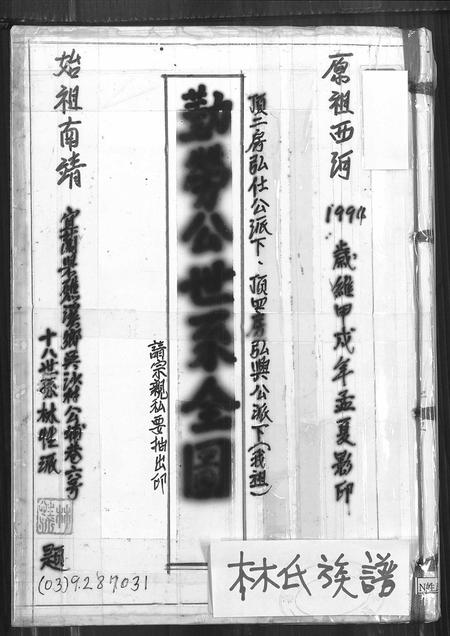 原祖西河
1994歲維甲戌年孟夏影印
頂二房弘仕公派下、頂四房弘興公派下(我祖)
勤勞公世系全圖
請宗親私要抽出印
始祖南靖
宜蘭県礁溪鄉吳沙村公埔巷六号
十八世孫林性派
題
(03)9287031
林氏族譜
N姓